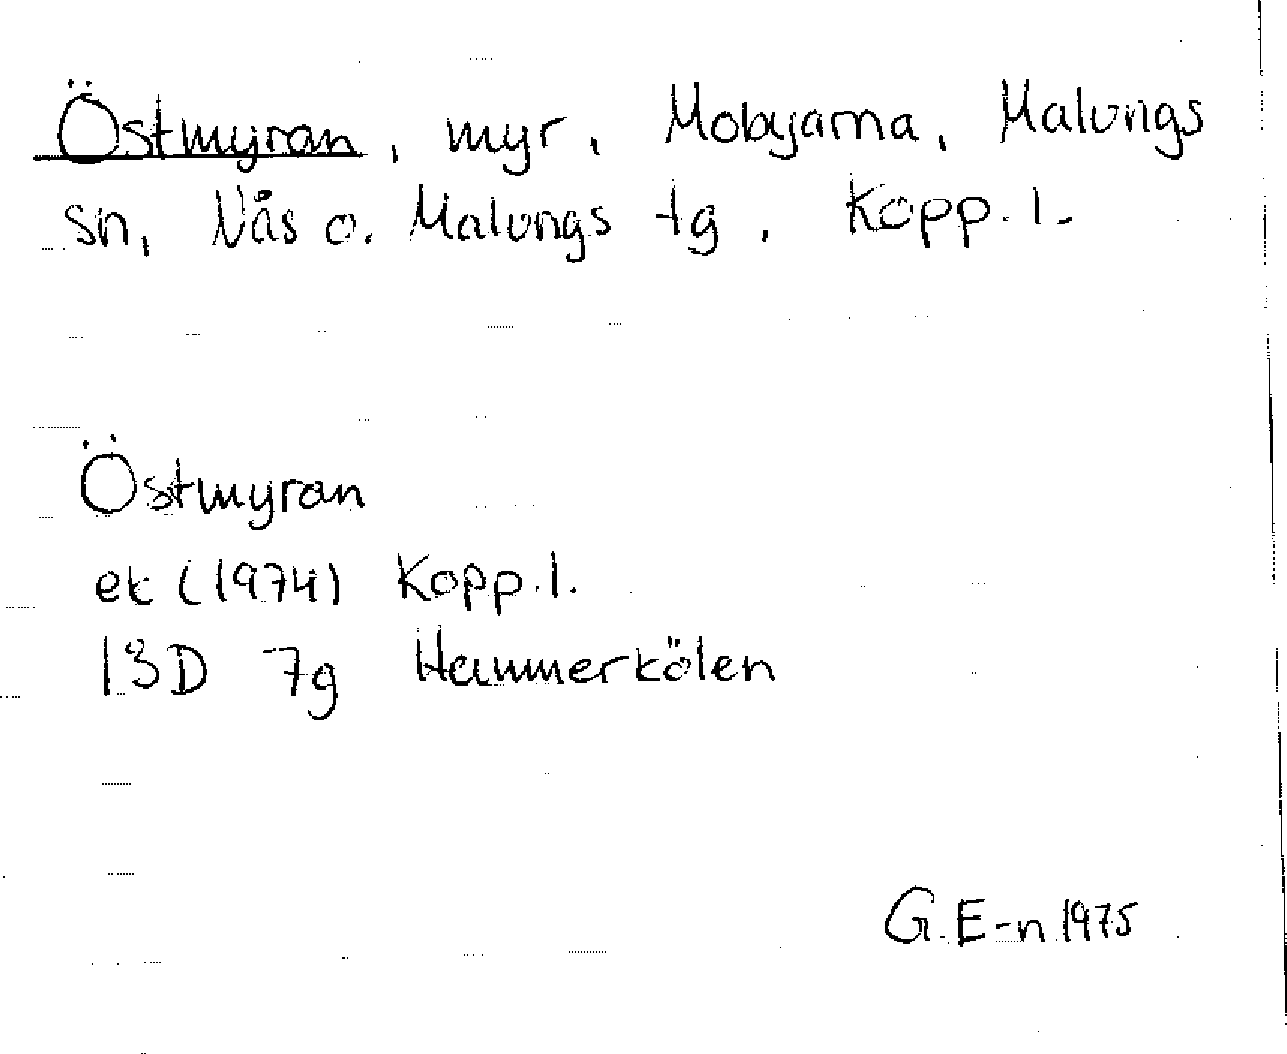 Östmyran, myr, Mobyarna, Malungs
sn, Nås o. Malungs tg, Kopp. l.
Östmyran
ek (1974) Kopp. l.
13D 7g Hammerkölen
G. E-n 1975